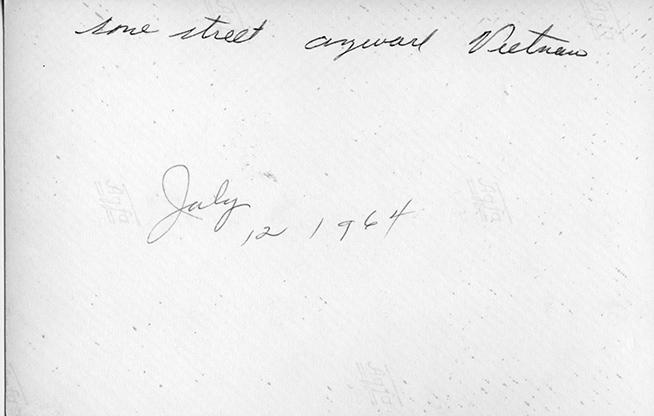 some street anyward Vietnam
July
12 1964